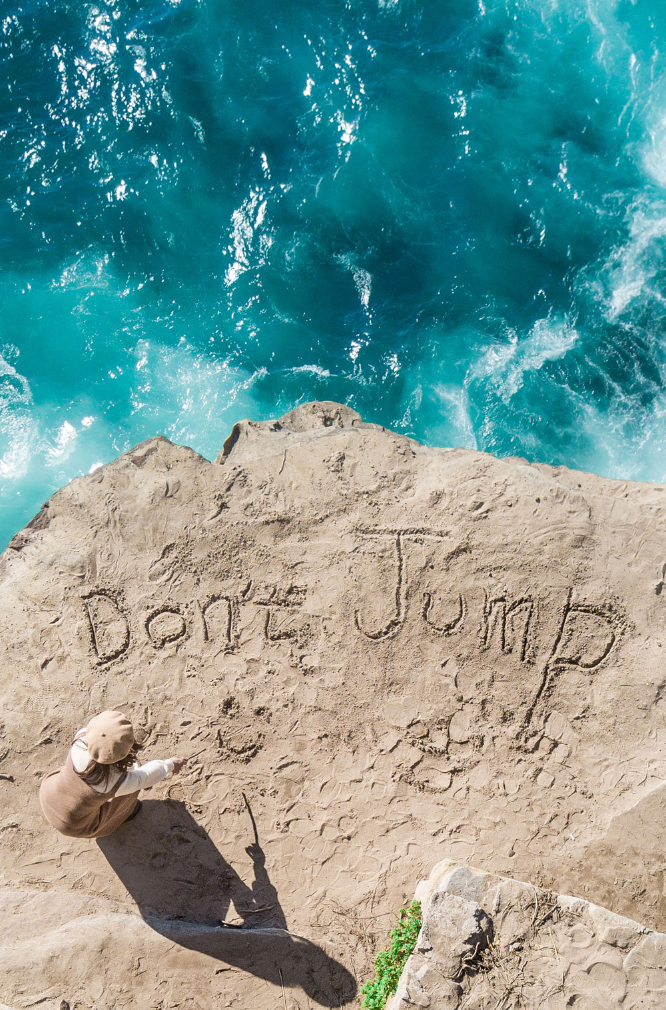 Dont Jump